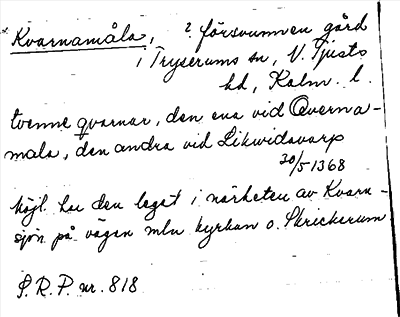 * Kvarnamåla, ? försvunnen gård
i Tryserums sn, N. Tjusts
hd, Kalm. l.
tvenne qvarnar, den ena vid Qverna-
mala, den andra vid Likwidavarp
20/5 1368
Möjl. har den legat i närheten av Kvarn-
sjön på vägen mln kyrkan o. Skrickerum
S.R.P. nr. 818